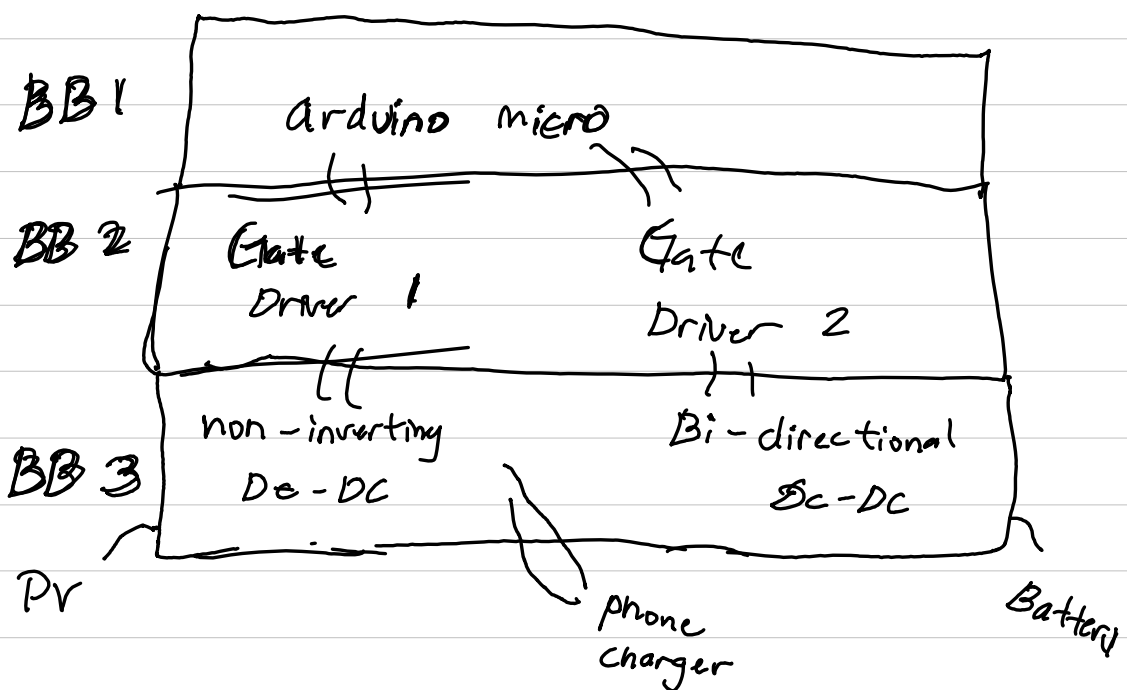 BB 1
arduino micro
BB 2
Gate
Driver 1
Gate
Driver 2
BB 3
non-inverting
DC-DC
Bi-directional
DC-DC
PV
phone
charger
Battery